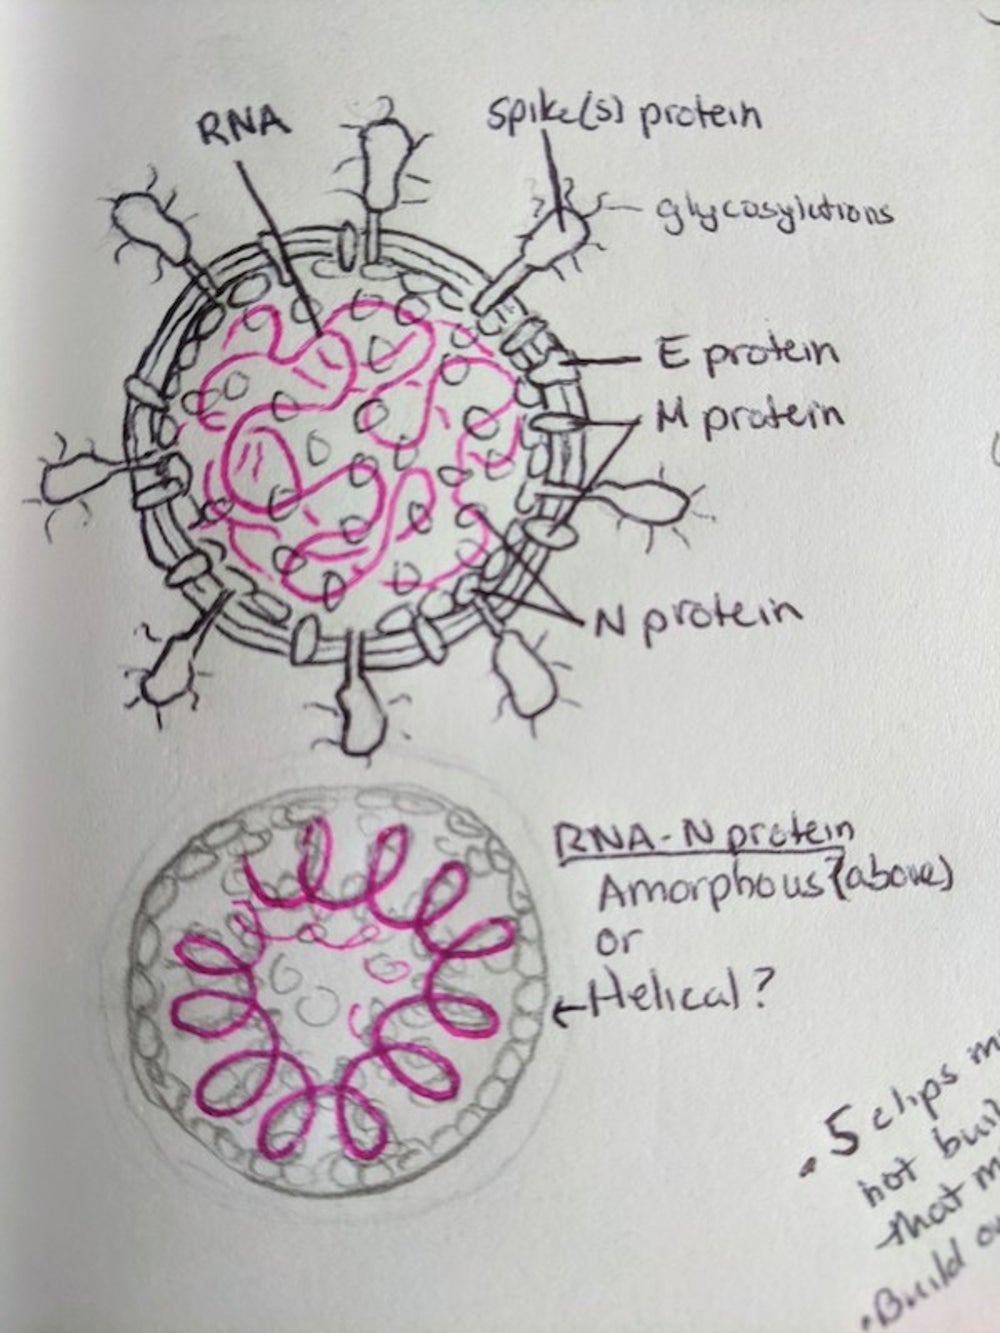 RNA
Spike(s) protein
glycosylations
E protein
M protein
N protein
RNA-N protein
Amorphous? (above)
or
←Helical?
• 5 clips m
not bui
that m
• Build o